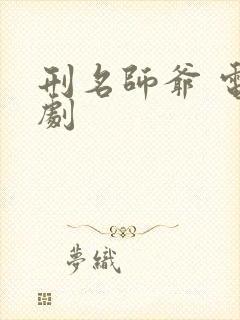 刑名師爺 電
劇
夢織